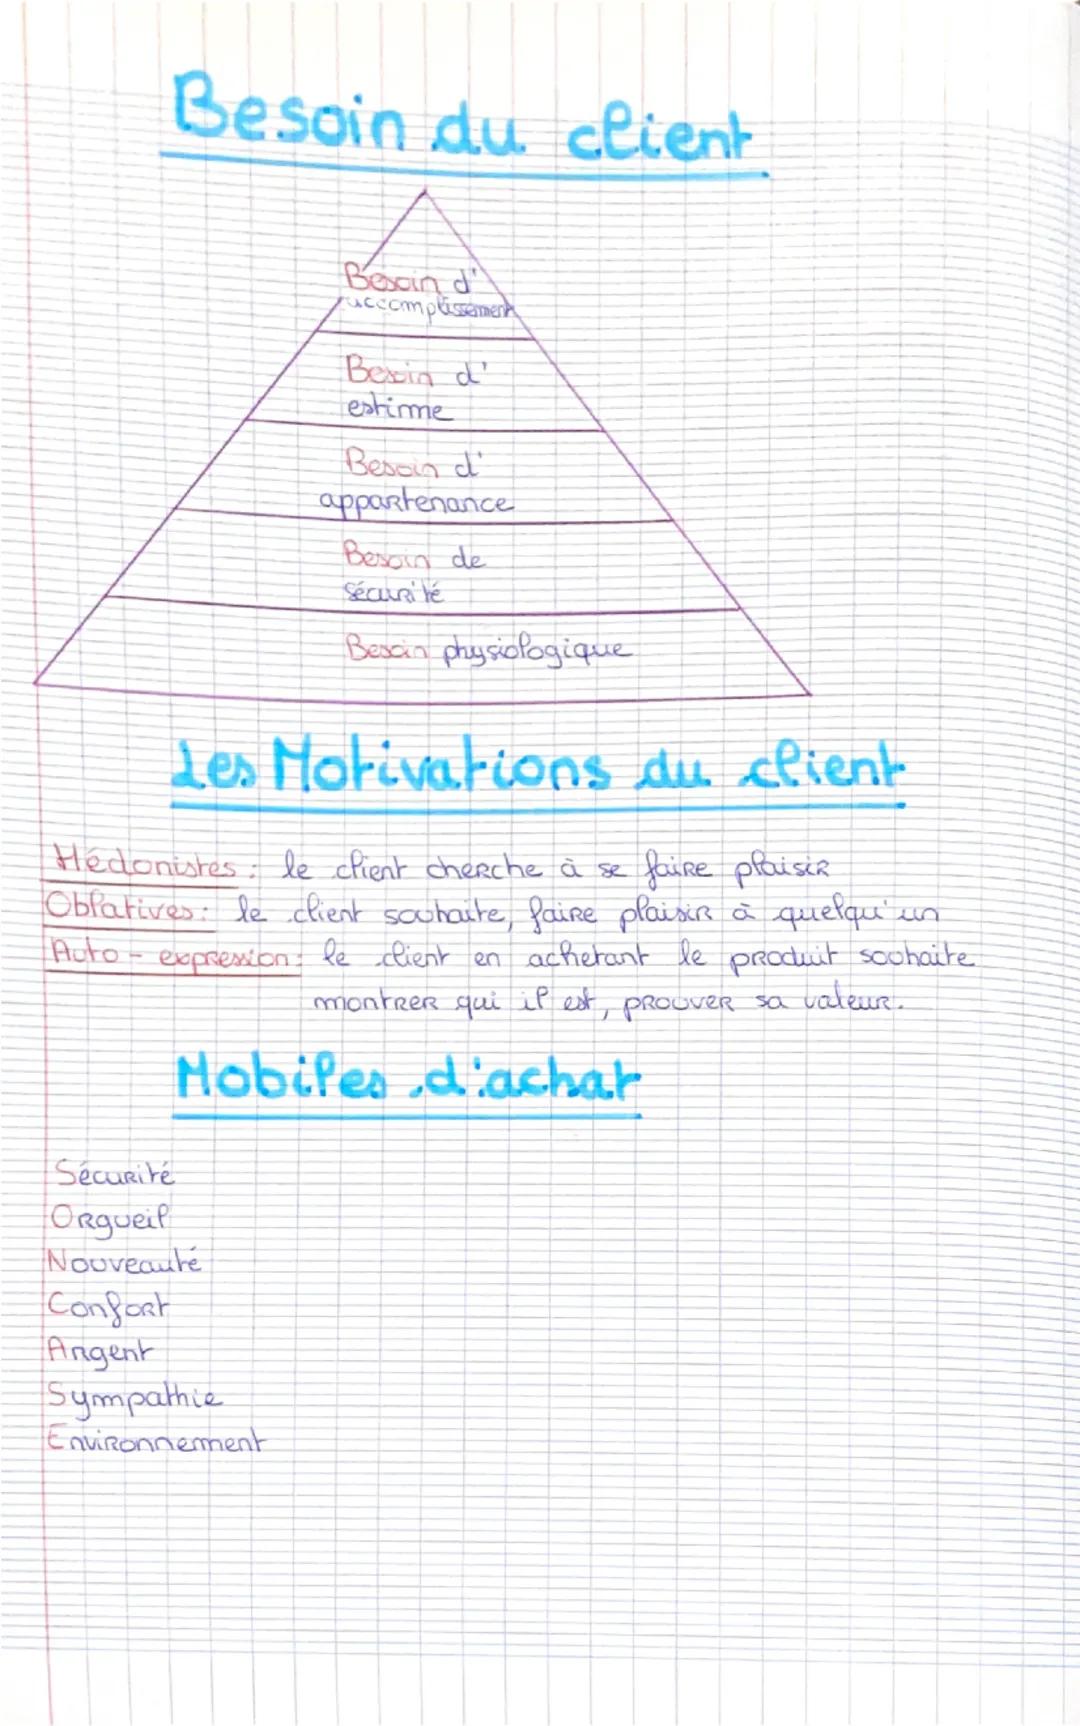 Besoin du client
Besoin d'
accomplissement
Besoin d'
estime
Besoin d'
appartenance
Besoin de
sécurité
Besoin physiologique
Les Motivations du client
Hédonistes : le client cherche à se faire plaisir
Oblatives : le client souhaite, faire plaisir à quelqu'un
Auto - expression : le client en achetant le produit souhaite
montrer qui il est, prouver sa valeur.
Mobiles d'achat
Sécurité
Orgueil
Nouveauté
Confort
Argent
Sympathie
Environnement